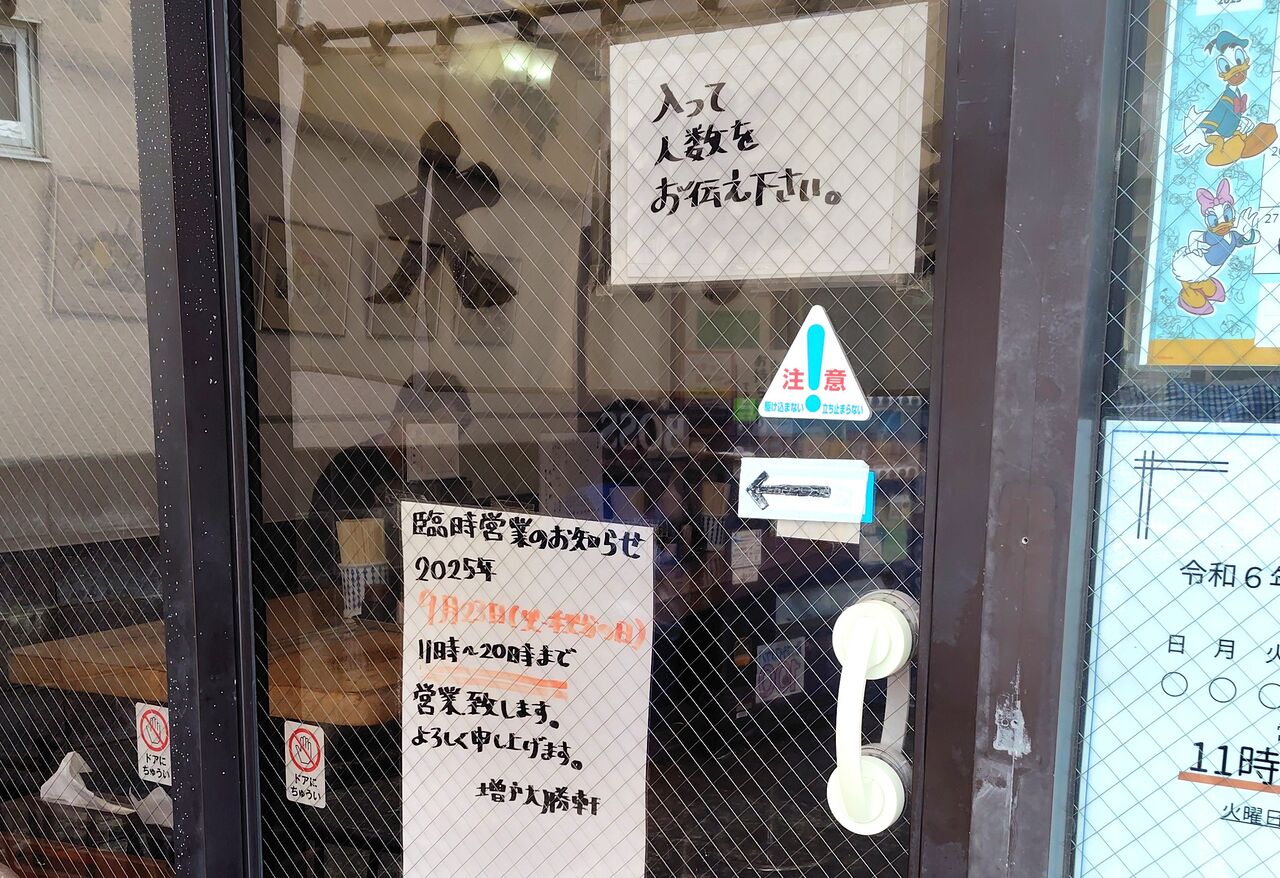 入って
人数を
お伝え下さい。
注意
駆け込まない 立ち止まらない
←
臨時営業のお知らせ
2025年
9月23日(火・秋分の日)
11時~20時まで
営業致します。
よろしく申し上げます。
増戸大勝軒
ドアに
ちゅうい
ドアに
ちゅうい
BOSS
令和6年
日 月 火
〇 〇 〇
11時
火曜日